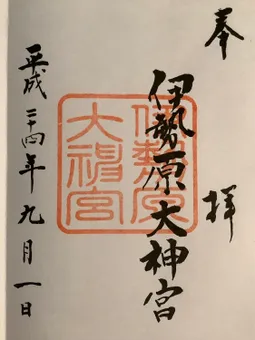 奉拝
伊勢原大神宮
平成二十四年九月一日
伊勢原
大神宮